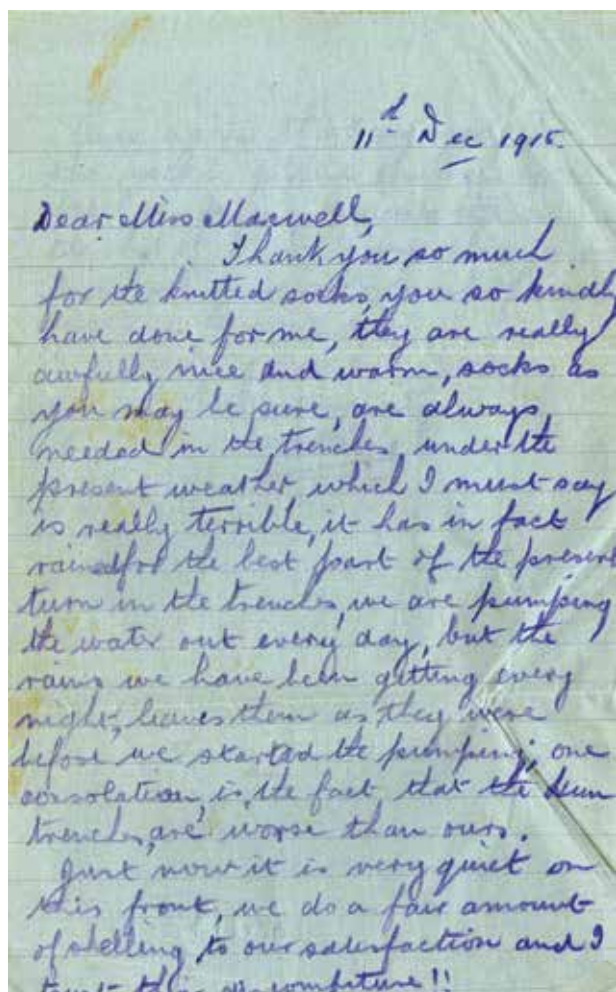 11th Dec 1915.
Dear Miss Maxwell,
Thank you so much
for the knitted socks, you so kindly
have done for me, they are really
awfully nice and warm, socks as
you may be sure, are always,
needed in the trenches, under the
present weather, which I must say
is really terrible, it has in fact
rained for the best part of the present
turn in the trenches, we are pumping
the water out every day, but the
rains we have been getting every
night, leaves them as they were
before we started the pumping, one
consolation, is, the fact, that the Hun
trenches, are worse than ours.
Just now it is very quiet on
this front, we do a fair amount
of shelling to our satisfaction and I
trust their discomfiture!!